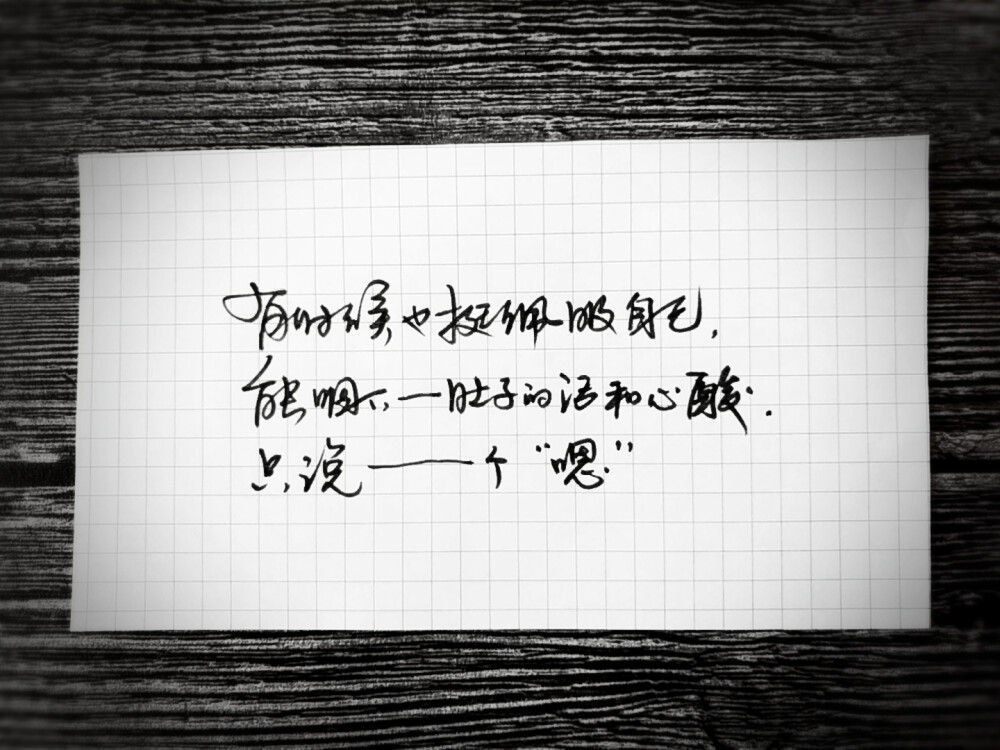 有时候也挺佩服自己,
能咽下一肚子的话和心酸.
只说一个“嗯.”